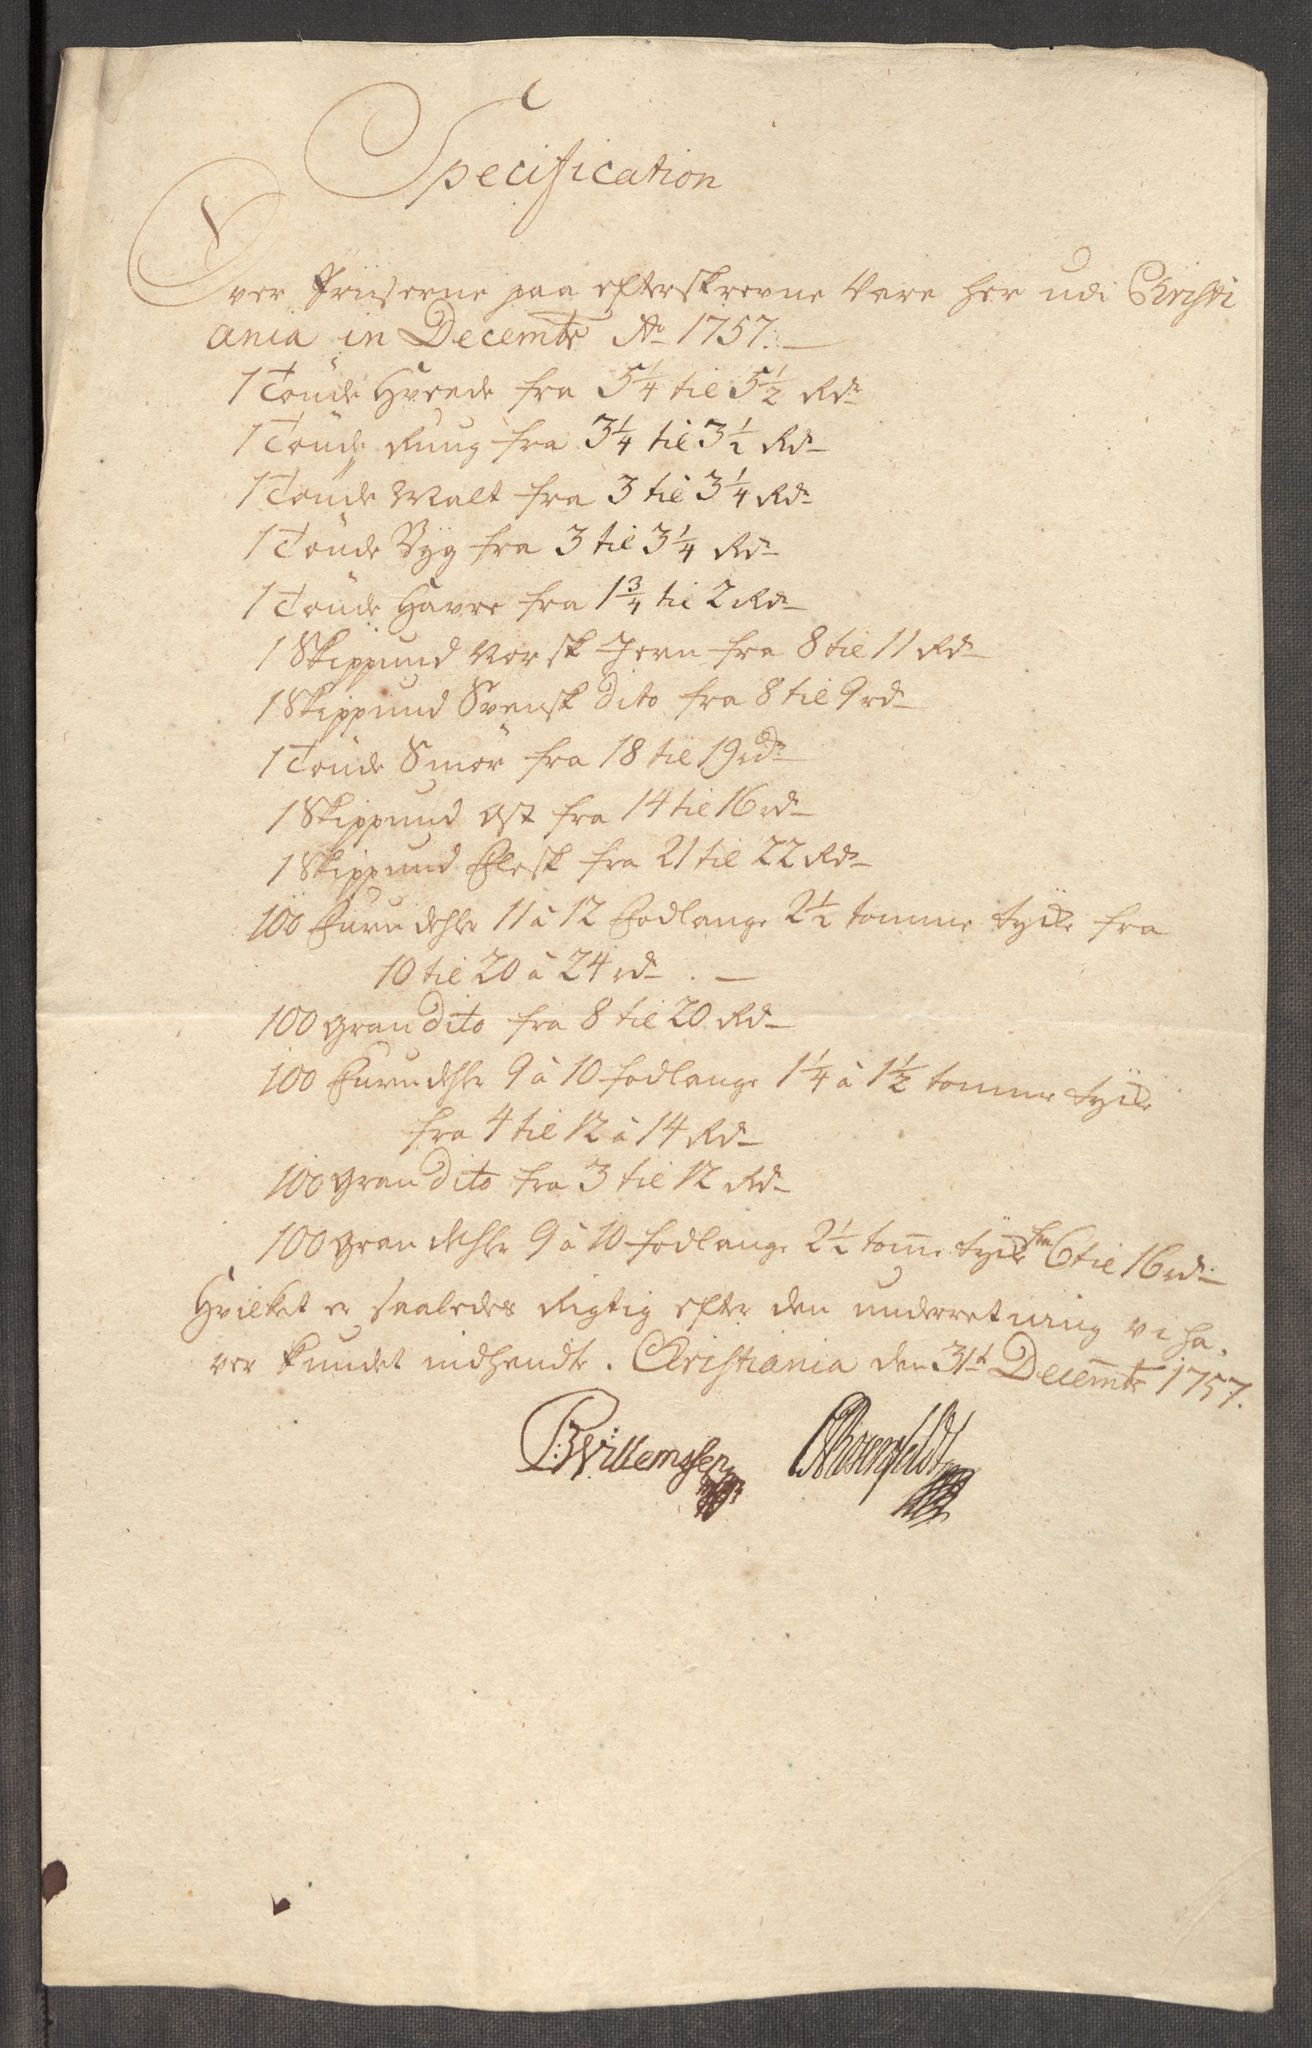 Specification
Over Priiserne paa efterskrevne Vare her udi Christi
ania in Decembr Ao 1757.
1 Tönde Hvede fra 5 1/4 til 5 1/2 Rdr
1 Tönde Ruug fra 3 1/4 til 3 1/2 Rdr
1 Tönde Malt fra 3 til 3 1/4 Rdr
1 Tönde Byg fra 3 til 3 1/4 Rdr
1 Tönde Havre fra 1 3/4 til 2 Rdr
1 Skippund Norsk Jern fra 8 til 11 Rdr
1 Skippund Svensk dito fra 8 til 9 rdr
1 Tönde Smör fra 18 til 19 rdr
1 Skippund Ost fra 14 til 16 rdr
1 Skippund Flesk fra 21 til 22 Rdr
100 Furu dehle 11 à 12 Fodlange 2 1/2 tomme tycke fra
10 til 20 à 24 rdr
100 gran dito fra 8 til 20 Rdr
100 Furu dehle 9 à 10 fodlange 1 1/4 à 1 1/2 tomme tycke
fra 4 til 12 à 14 Rdr
100 gran dito fra 3 til 12 Rdr
100 gran dehle 9 à 10 fodlange 2 1/2 tom̄e tycke fra 6 til 16 rdr
Hvilket er saaledes Rigtig efter den underretning vi ha,
ver kundet indhendte. Christiania den 31t Decembr 1757.
B Willemssen